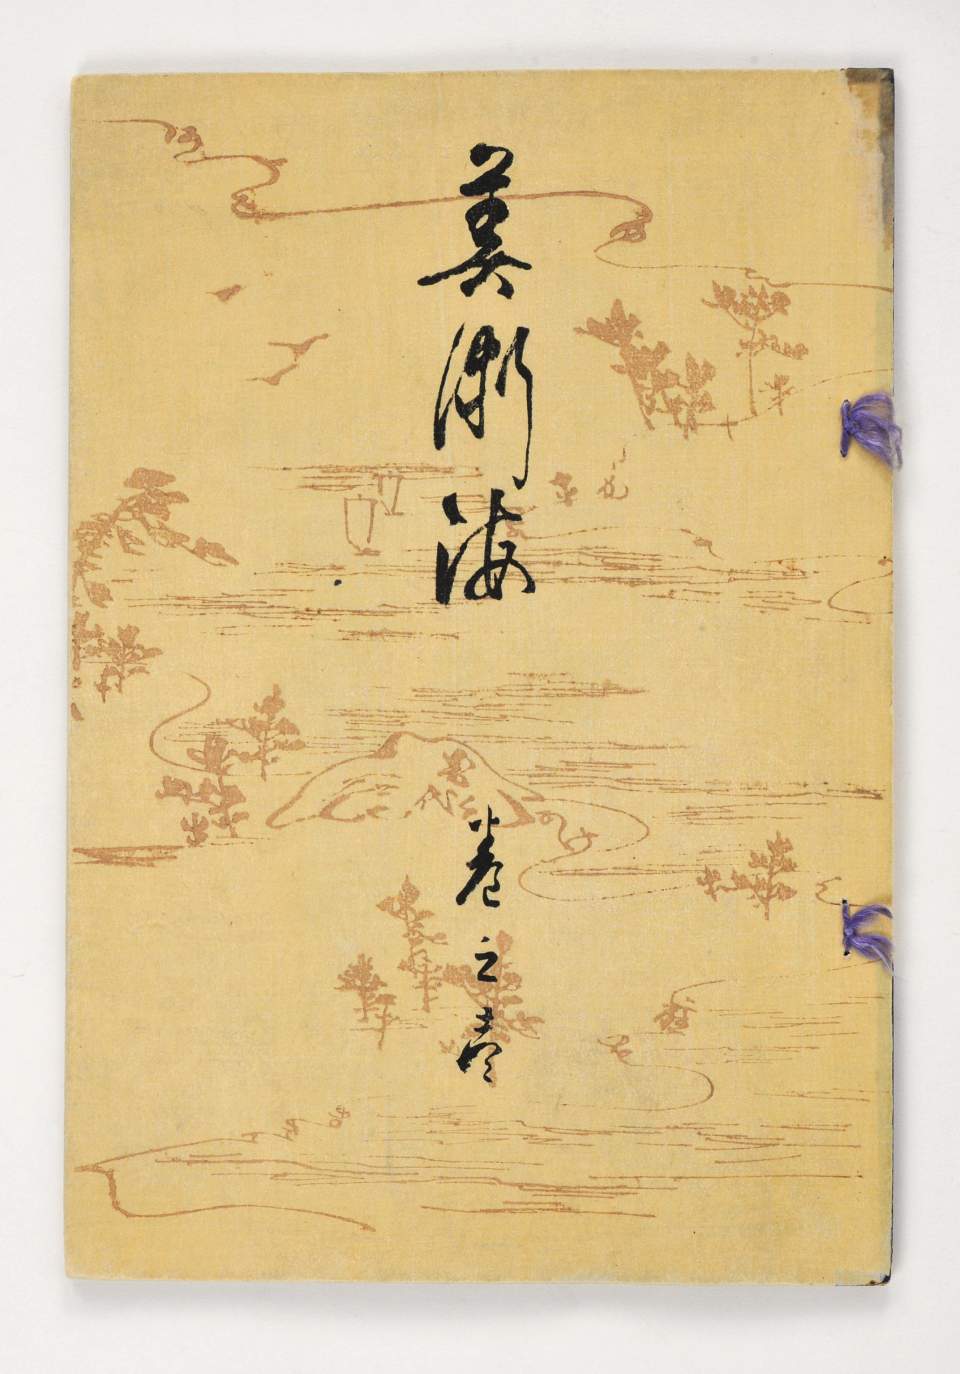 美術海
巻之壱